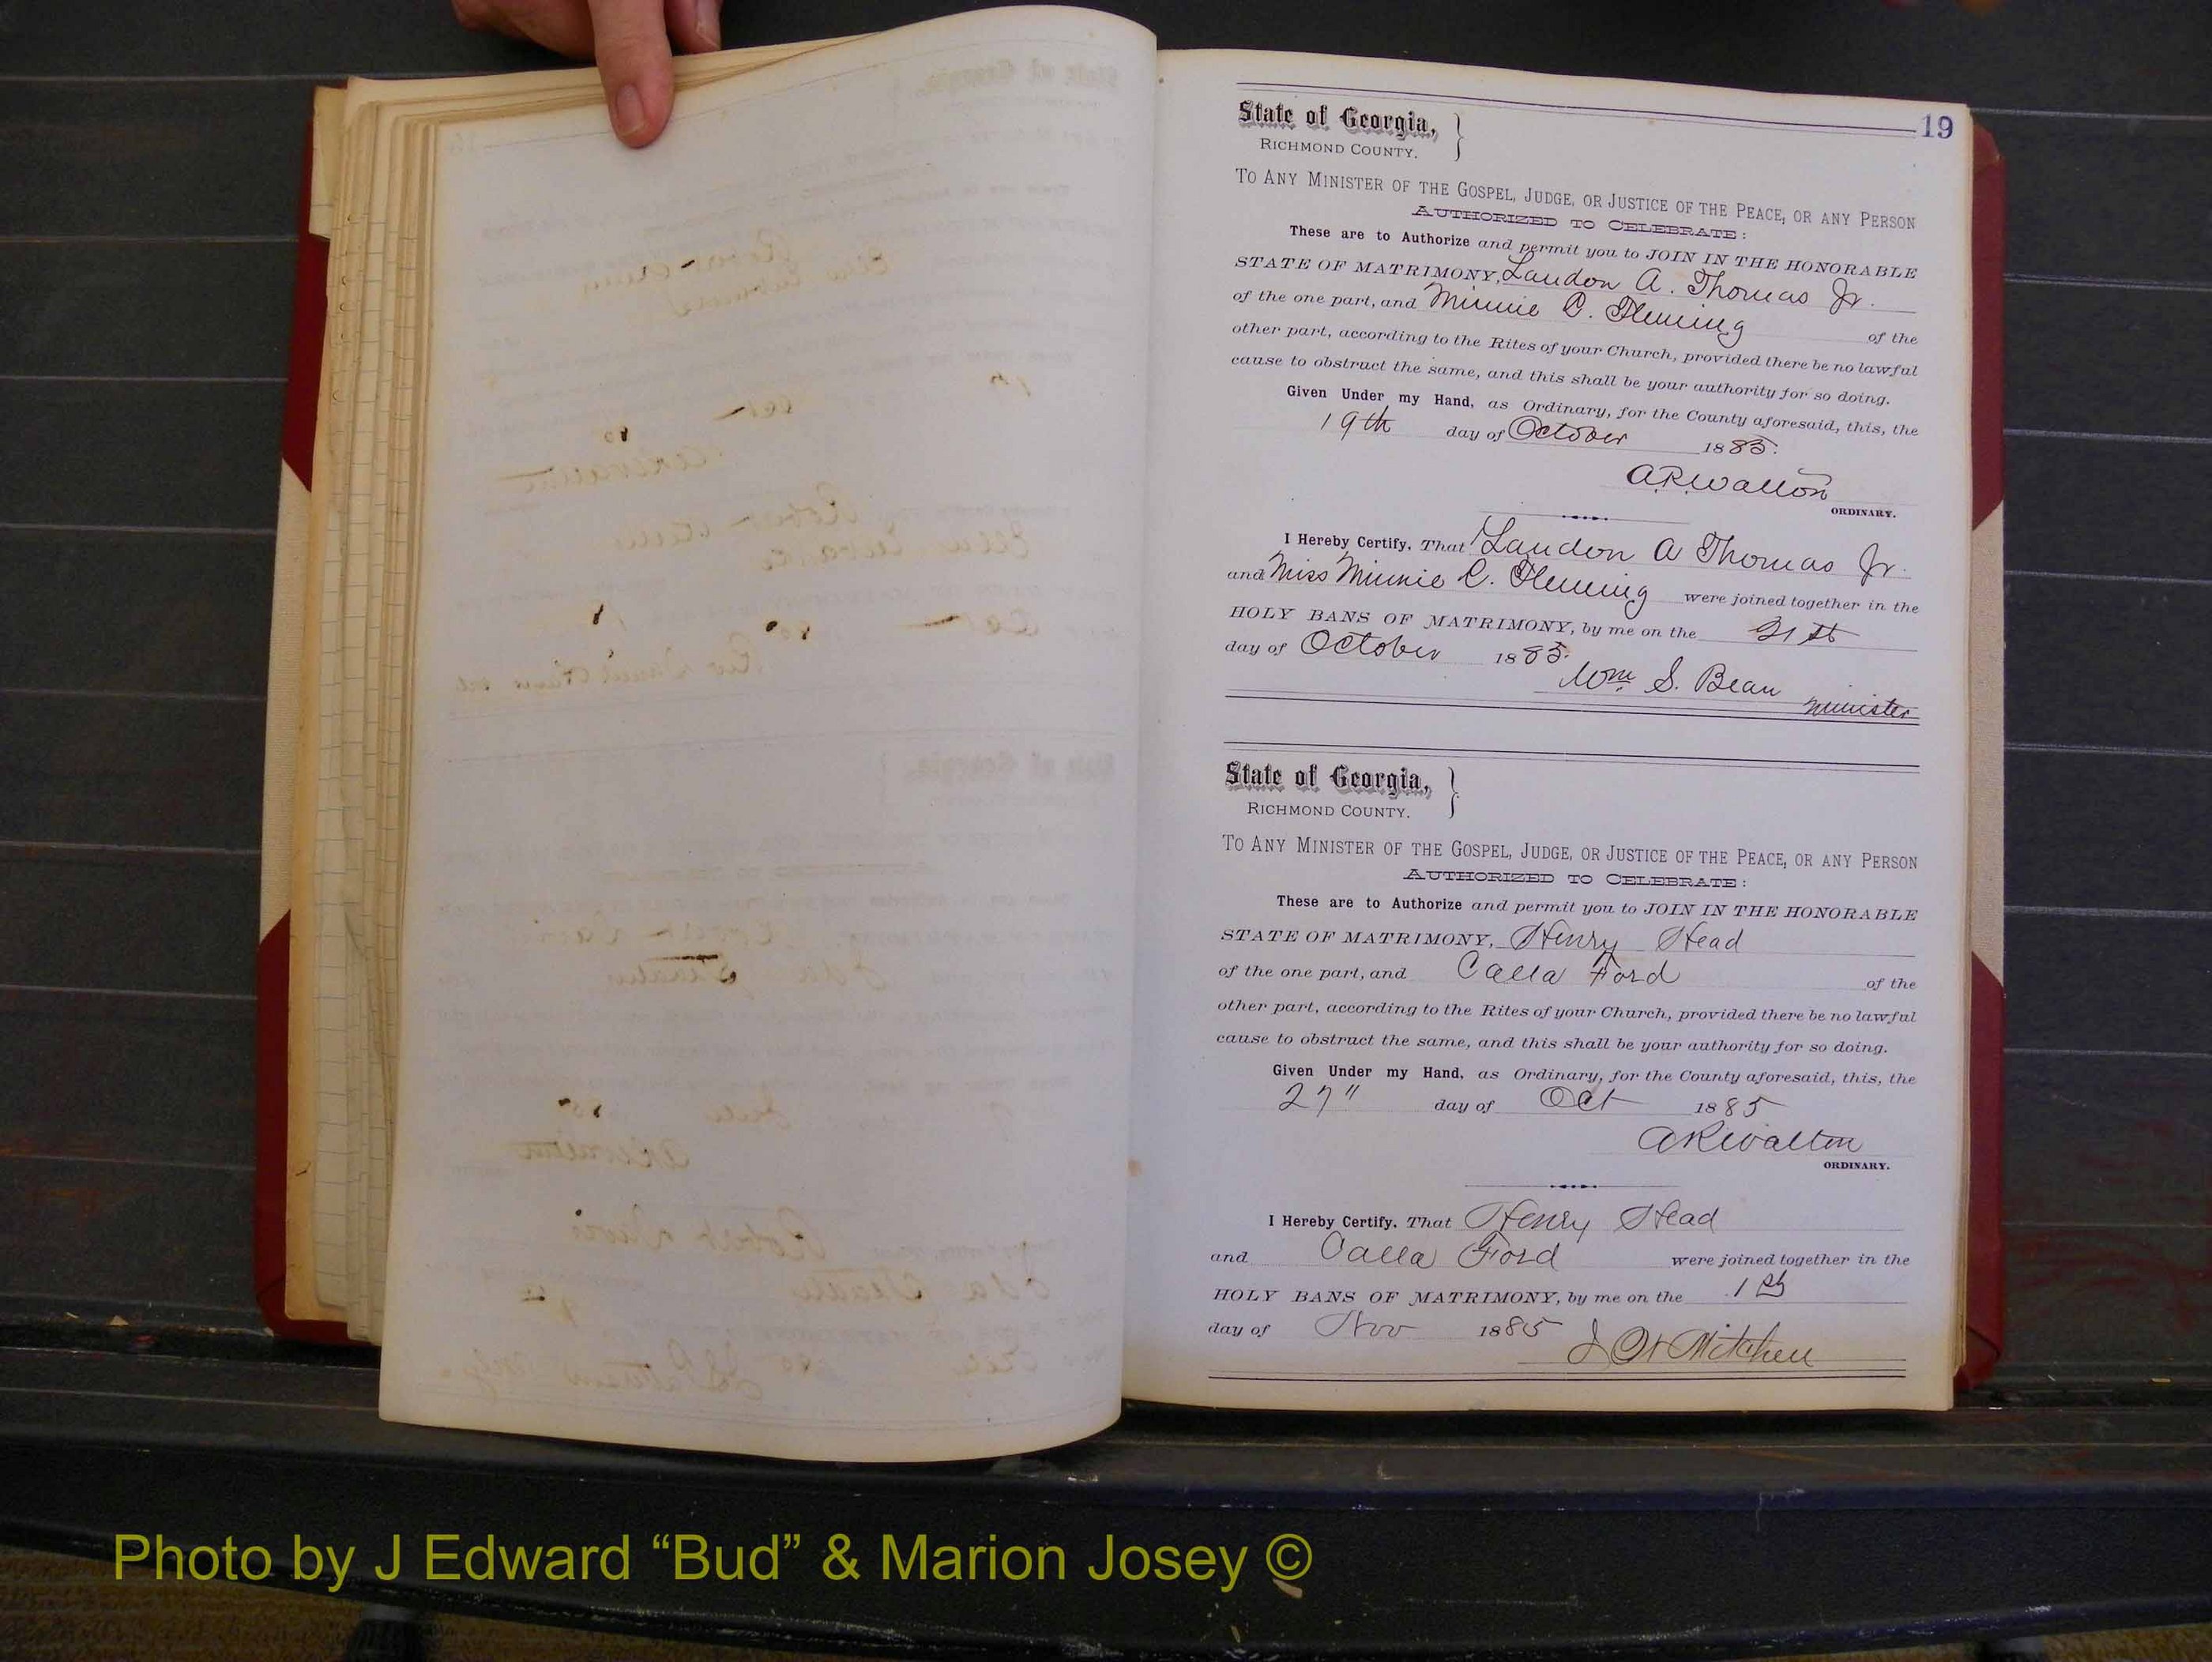 19
State of Georgia,
RICHMOND COUNTY.
TO ANY MINISTER OF THE GOSPEL, JUDGE, OR JUSTICE OF THE PEACE, OR ANY PERSON
AUTHORIZED TO CELEBRATE:
These are to Authorize and permit you to JOIN IN THE HONORABLE
STATE OF MATRIMONY, Landon A. Thomas Jr.
of the one part, and Minnie C. Fleming of the
other part, according to the Rites of your Church, provided there be no lawful
cause to obstruct the same, and this shall be your authority for so doing.
Given Under my Hand, as Ordinary, for the County aforesaid, this, the
19th day of October 1885.
A.R. Walton
ORDINARY.
I Hereby Certify, That Landon A Thomas Jr.
and Miss Minnie C. Fleming were joined together in the
HOLY BANS OF MATRIMONY, by me on the 21st
day of October 1885.
Wm S. Bean
minister
State of Georgia,
RICHMOND COUNTY.
TO ANY MINISTER OF THE GOSPEL, JUDGE, OR JUSTICE OF THE PEACE, OR ANY PERSON
AUTHORIZED TO CELEBRATE:
These are to Authorize and permit you to JOIN IN THE HONORABLE
STATE OF MATRIMONY, Henry Head
of the one part, and Calla Ford of the
other part, according to the Rites of your Church, provided there be no lawful
cause to obstruct the same, and this shall be your authority for so doing.
Given Under my Hand, as Ordinary, for the County aforesaid, this, the
27" day of Oct 1885
A R Walton
ORDINARY.
I Hereby Certify, That Henry Head
and Calla Ford were joined together in the
HOLY BANS OF MATRIMONY, by me on the 1st
day of Nov 1885 Mitchell
Photo by J Edward “Bud” & Marion Josey ©